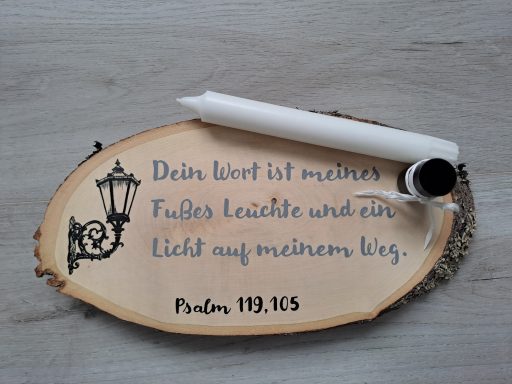 Dein Wort ist meines
Fußes Leuchte und ein
Licht auf meinem Weg.
Psalm 119,105